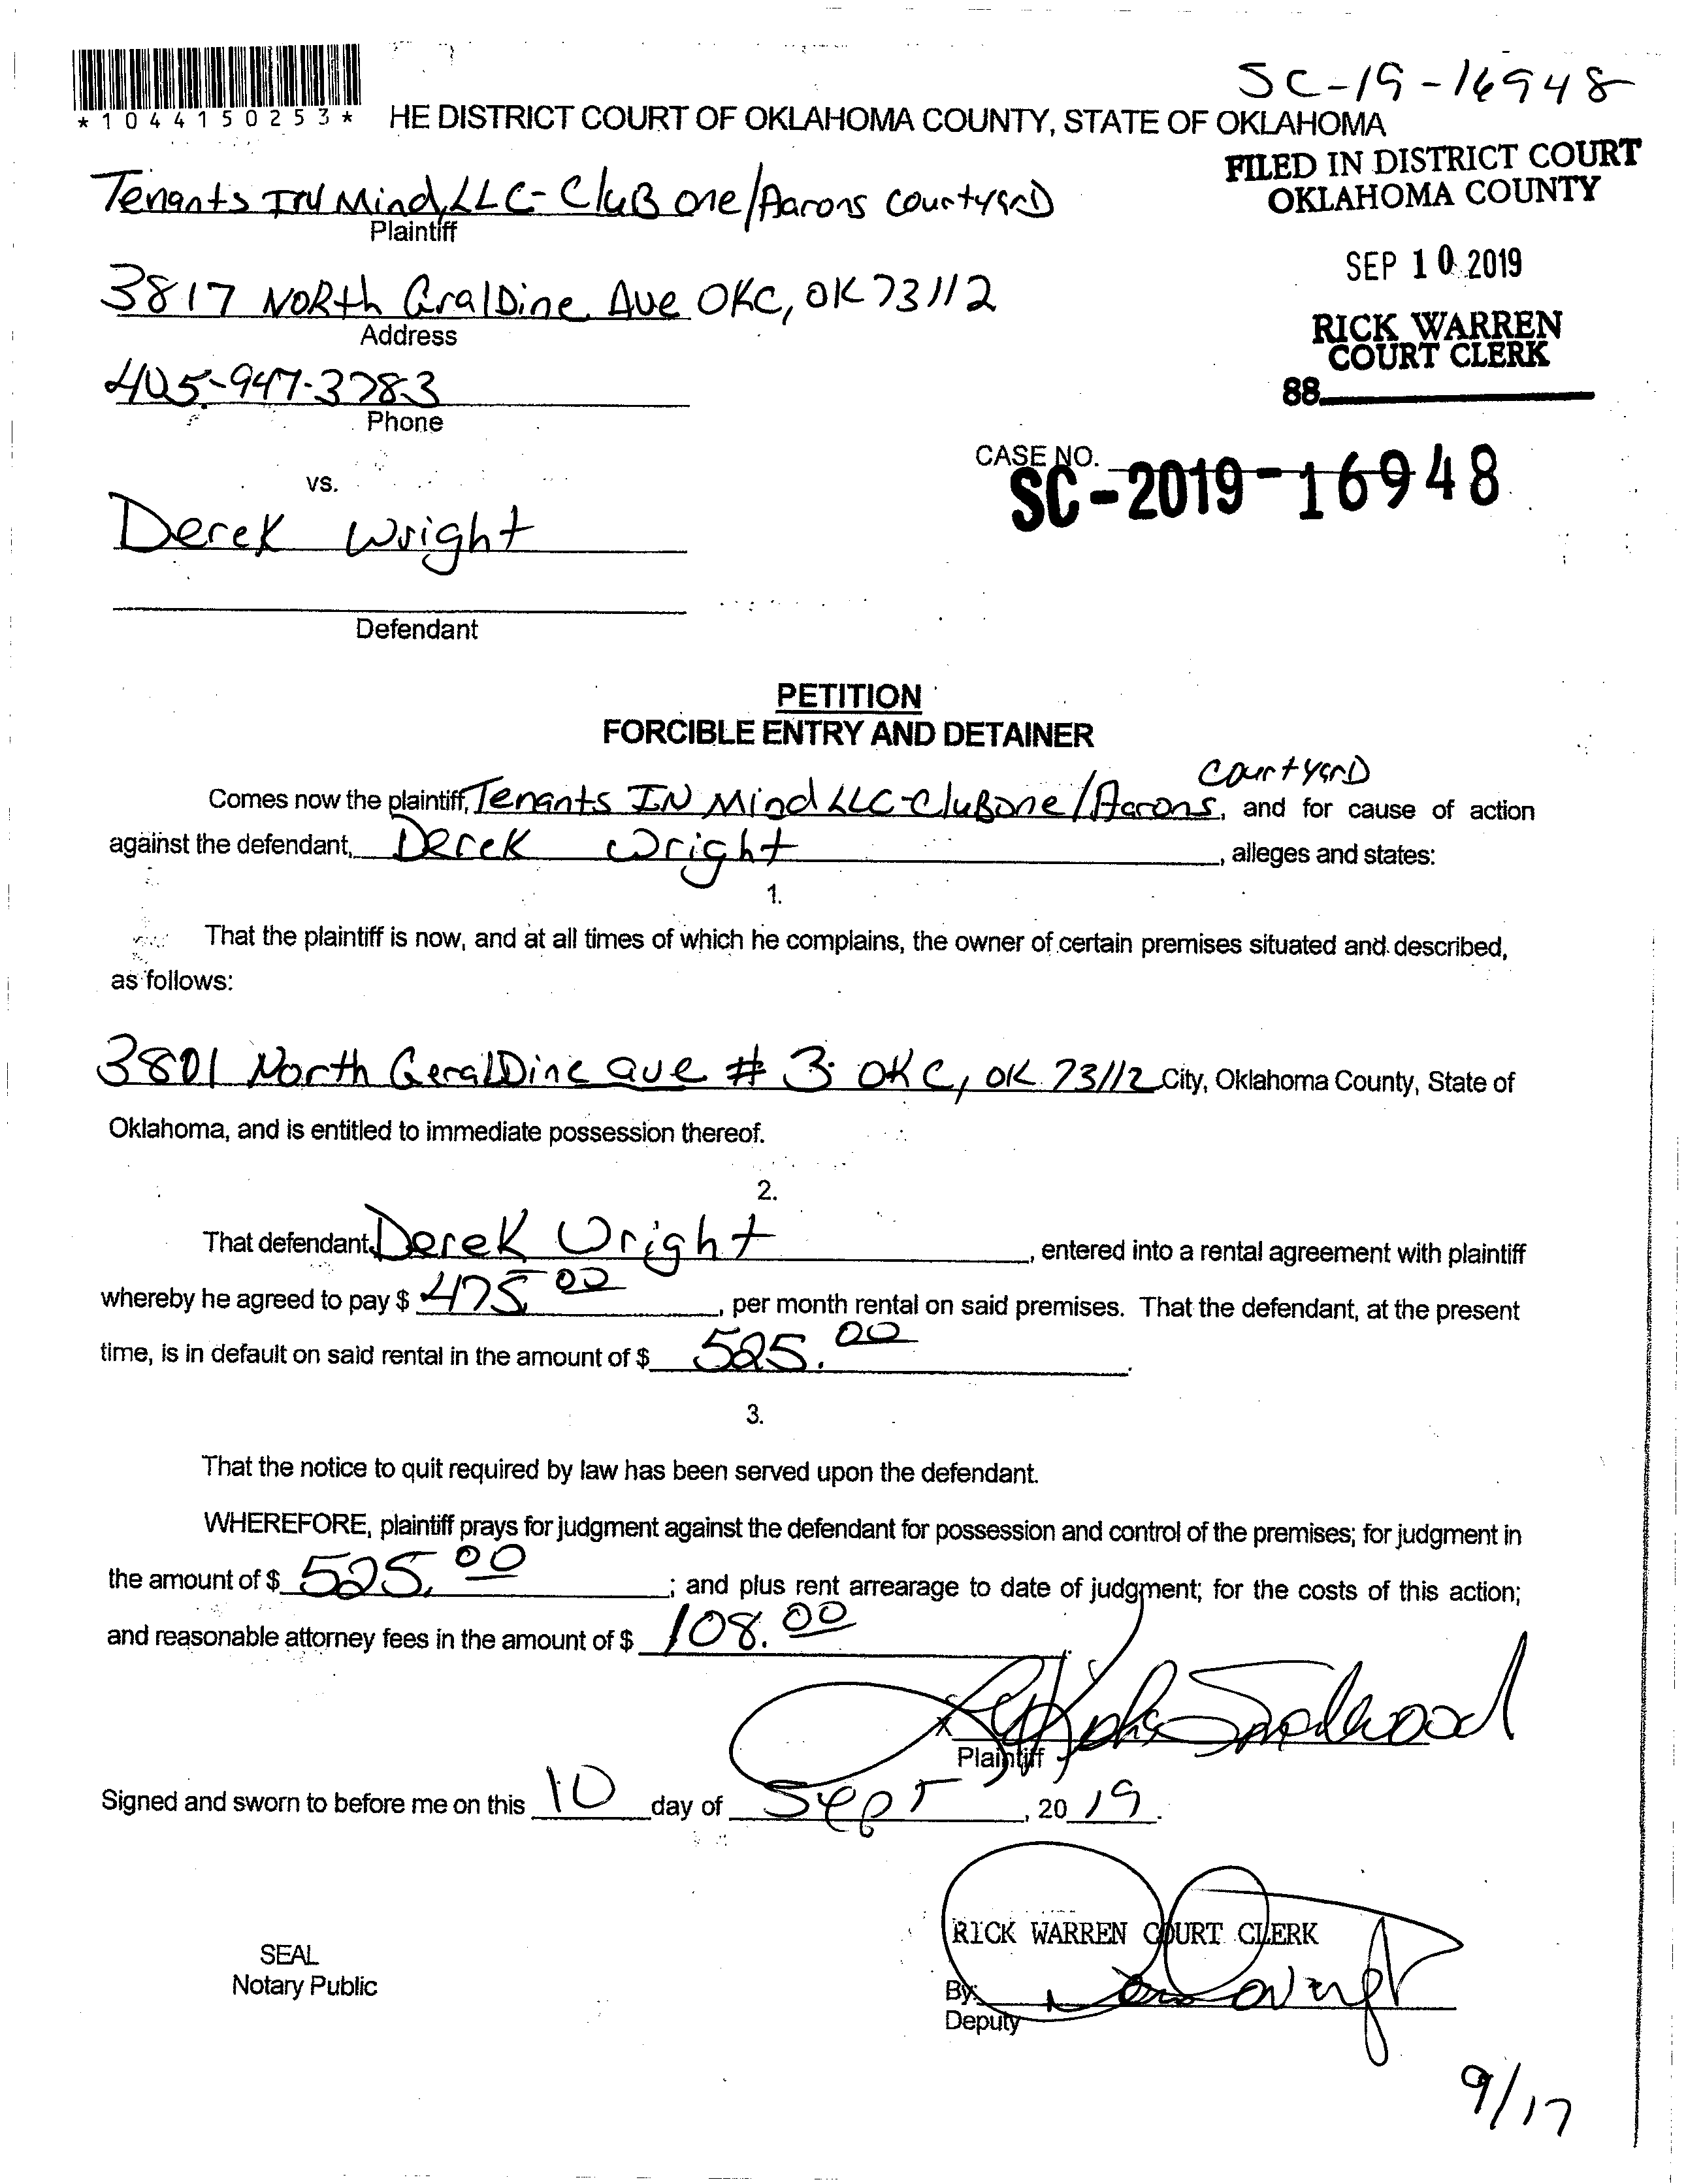 SC-19-16948
*1044150253*
HE DISTRICT COURT OF OKLAHOMA COUNTY, STATE OF OKLAHOMA
FILED IN DISTRICT COURT
OKLAHOMA COUNTY
Tenants IN Mind, LLC - CluB one/Aarons courtyarD
Plaintiff
SEP 10 2019
3817 NORth GralDine Ave OKC, OK 73112
Address
RICK WARREN
COURT CLERK
88
405-947-3783
Phone
CASE NO.
SC-2019-16948
vs.
Derek Wright
Defendant
PETITION
FORCIBLE ENTRY AND DETAINER
courtyarD
Comes now the plaintiff, Tenants IN Mind LLC-CluBone/Aarons, and for cause of action
against the defendant, Derek Wright, alleges and states:
1.
That the plaintiff is now, and at all times of which he complains, the owner of certain premises situated and described,
as follows:
3801 North GeralDine ave # 3 OKC, OK 73112 City, Oklahoma County, State of
Oklahoma, and is entitled to immediate possession thereof.
2.
That defendant, Derek Wright, entered into a rental agreement with plaintiff
whereby he agreed to pay $ 475.00, per month rental on said premises. That the defendant, at the present
time, is in default on said rental in the amount of $ 525.00.
3.
That the notice to quit required by law has been served upon the defendant.
WHEREFORE, plaintiff prays for judgment against the defendant for possession and control of the premises; for judgment in
the amount of $ 525.00; and plus rent arrearage to date of judgment; for the costs of this action;
and reasonable attorney fees in the amount of $ 108.00
x
Plaintiff
Signed and sworn to before me on this 10 day of Sept, 20 19.
RICK WARREN COURT CLERK
SEAL
Notary Public
By:
Deputy
9/17